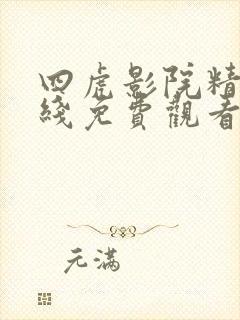 四虎影院精
綫免費觀看
元滿